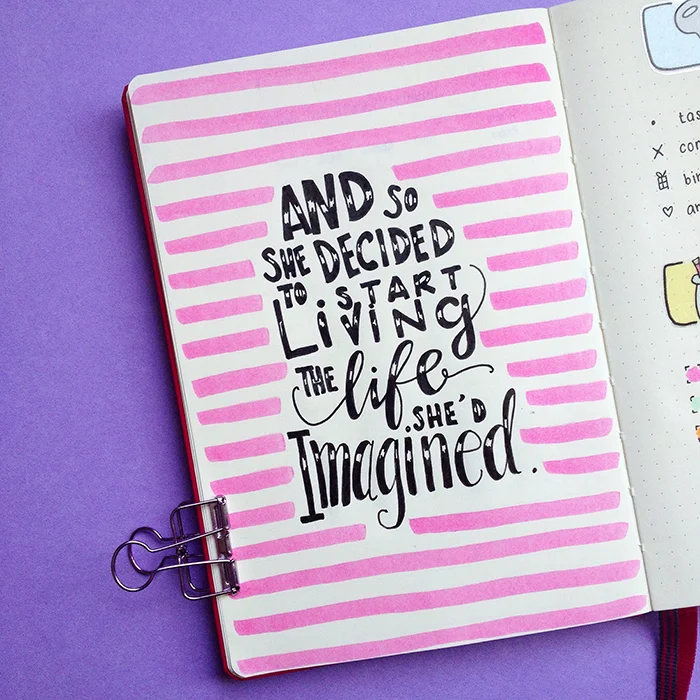 AND SO
SHE DECIDED
TO START
LiViNg
THE life
SHE'D
Imagined.